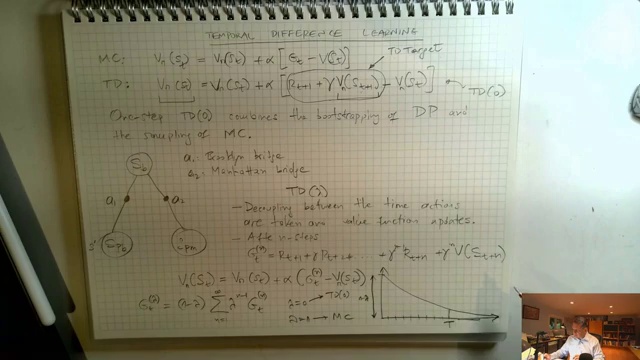 TEMPORAL DIFFERENCE LEARNING
MC: Vπ(St) = Vπ(St) + α [Gt - V(St)]
TD Target
TD: Vπ(St) = Vπ(St) + α [Rt+1 + γVπ(St+1) - Vπ(St)]
TD(0)
One-step TD(0) combines the bootstrapping of DP and
the sampling of MC.
St
a1: Brooklyn bridge
a2: Manhattan bridge
a1
a2
s'
TD(λ)
- Decoupling between the time actions
are taken and value function updates.
- After n-steps
Gt(n) = Rt+1 + γRt+2 + γ^n-1 Rt+n + γ^n V(St+n)
Vπ(St) = Vπ(St) + α (Gt(n) - Vπ(St))
Gt(λ) = (1-λ) Σ n=1 ∞ λ^n-1 Gt(n)
λ=0 → TD(0)
λ=1 → MC
1-λ
T